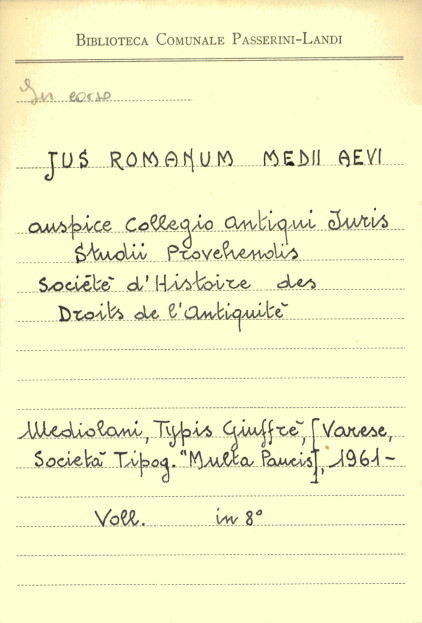 BIBLIOTECA COMUNALE PASSERINI-LANDI
In corso
JUS ROMANUM MEDII AEVI
auspice Collegio antiqui Juris
Studii Provehendis
Société d'Histoire des
Droits de l'Antiquité
Mediolani, Typis Giuffrè, [Varese,
Società Tipog. "Multa Paucis], 1961-
Voll. in 8°